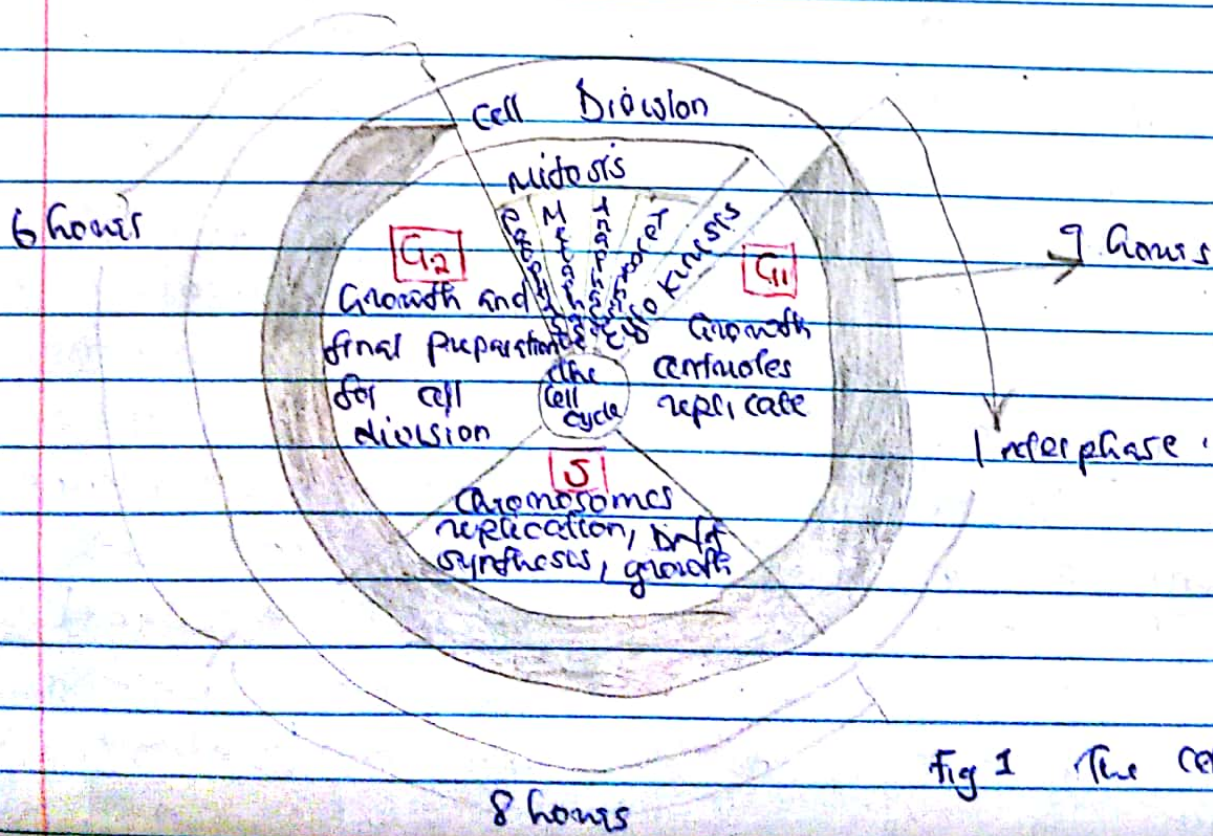 Cell Division
Mitosis
Prophase
Metaphase
Anaphase
Cytokinesis
6 hours
9 hours
G2
Growth and
final preparation
for cell
division
G1
Growth
centrioles
replicate
The
Cell
cycle
Interphase
S
Chromosomes
replication, DNA
synthesis, growth
Fig 1 The
8 hours